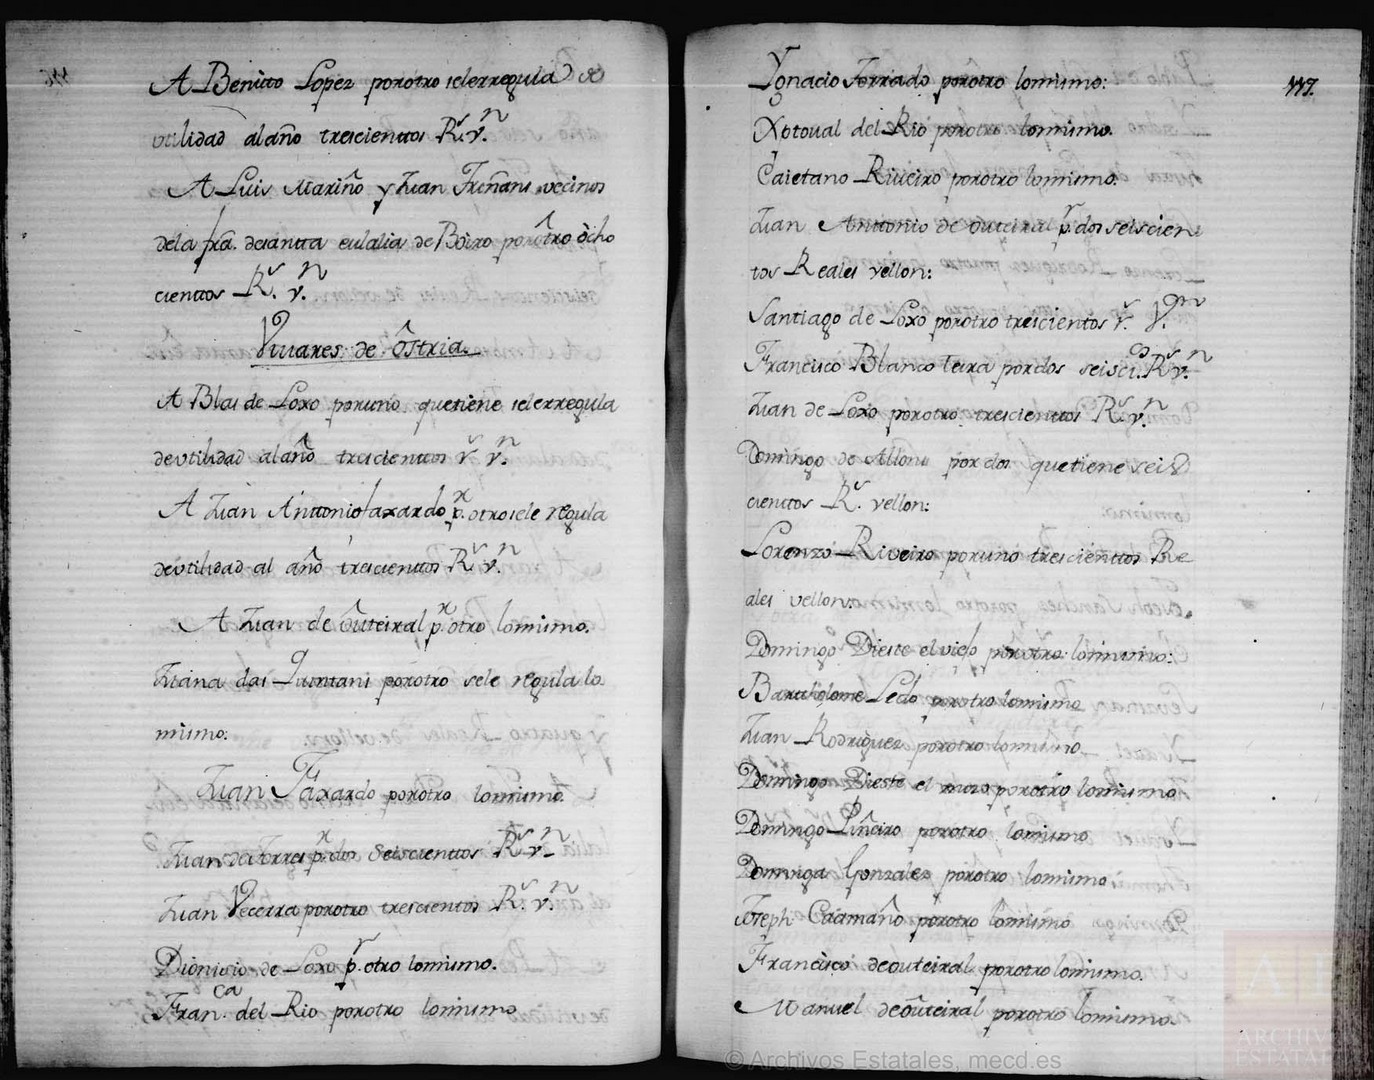 A Benito Lopez porotro selerregula de
utilidad alaño trescienttos R.s v.n
A Luis Mariño y Juan Friñans vecinos
dela fra. desantta eulalia de Boiro porotro ocho
cienttos R.s v.n
Viuares de Ostria
A Blas de Loxo poruno quetiene selerregula
deutilidad alaño trescienttos r.s v.n
A Juan Anttonio faxardo p.r otro sele regula
deutilidad al año trescienttos R.s v.n
A Juan de outeiral p.r otro lomismo.
Juana das Quintans porotro sele regula lo
mismo:
Juan Faxardo porotro lomismo.
Juan da Torre p.r dos Seiscienttos R.s v.n
Juan Vecerra porotro trescientos R.s v.n
Dionisio de Loxo p.r otro lomismo.
Fran.ca del Rio porotro lomismo
117.
Ygnacio Torrado porotro lomismo:
Xptoual del Rio porotro lomismo.
Caietano Riueiro porotro lomismo.
Juan Anttonio de outeiral p.r dos seiscien
tos Reales vellon:
Santiago de Loxo porotro trescientos r.s V.n
Francisco Blanco teira pordos seisci.os R.s v.n
Juan de Loxo porotro trescienttos R.s v.n
Domingo de Allons por dos quetiene seis
cienttos R.s vellon:
Lorenzo Riveiro poruno trescienttos Re
ales vellon:
Domingo Dieste el viejo porotro lomismo:
Bartholome Ledo porotro lomismo
Juan Rodriguez porotro lomismo
Domingo Dieste el mozo porotro lomismo
Domingo Piñeiro porotro lomismo
Dominga Gonzales porotro lomismo
Joseph Caamaño porotro lomismo
Francisco deouteiral porotro lomismo.
Manuel deouteiral porotro lomismo.
© Archivos Estatales, mecd.es
AE
ARCHIVOS
ESTATALES